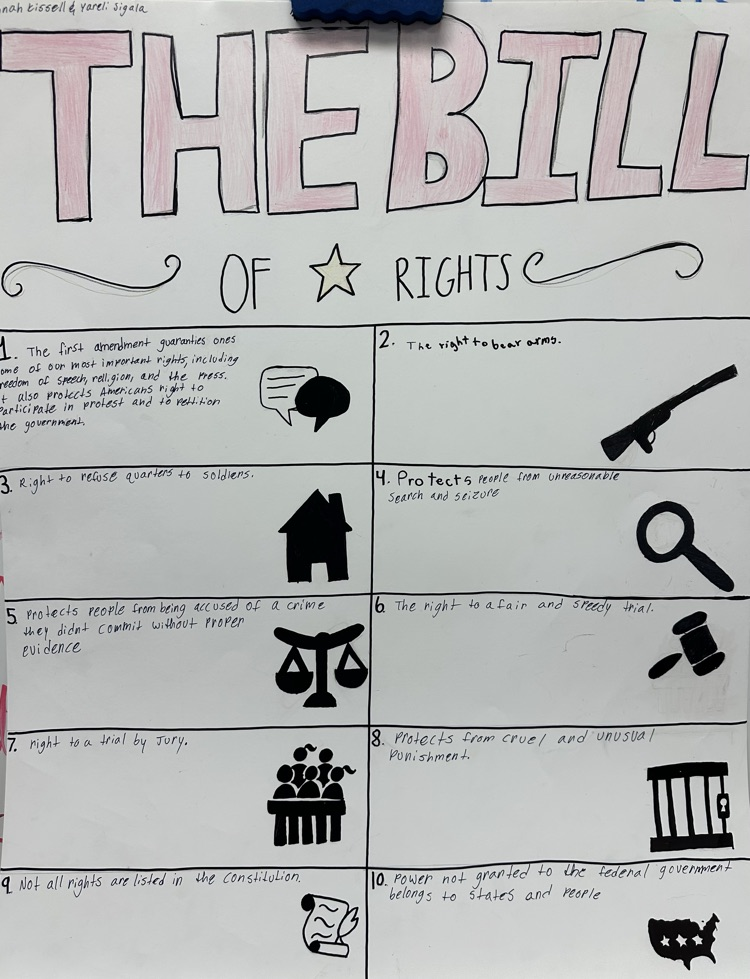 nnah Kissell & Yareli Sigala
THE BILL
OF RIGHTS
1. The first amendment guaranties ones
ome of our most important rights, including
reedom of speech, religion, and the press.
t also protects Americans right to
participate in protest and to petition
the government.
2. The right to bear arms.
3. Right to refuse quarters to soldiers.
4. Protects people from unreasonable
search and seizure
5. Protects people from being accused of a crime
they didnt commit without proper
evidence
6. The right to a fair and speedy trial.
7. right to a trial by Jury.
8. Protects from cruel and unusual
Punishment.
9. Not all rights are listed in the constitution.
10. Power not granted to the federal government
belongs to states and people